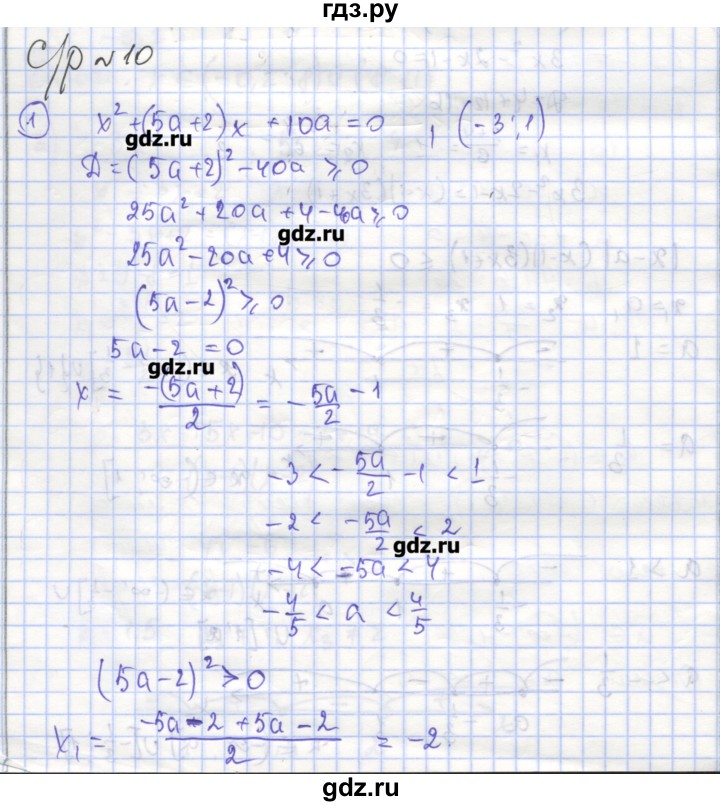 гдз.ру
с/р №10
1 x² + (5a+2)x + 10a = 0 , (-3; 1)
gdz.ru
D = (5a+2)² - 40a ⩾ 0
25a² + 20a + 4 - 40a ⩾ 0
gdz.ru
25a² - 20a + 4 ⩾ 0
(5a-2)² ⩾ 0
5a - 2 = 0
gdz.ru
x = -(5a+2)/2 = -5a/2 - 1
-3 < -5a/2 - 1 < 1
-2 < -5a/2 < 2
gdz.ru
-4 < -5a < 4
-4/5 < a < 4/5
(5a-2)² > 0
x₁ = (-5a - 2 + 5a - 2)/2 = -2
gdz.ru
gdz.ru